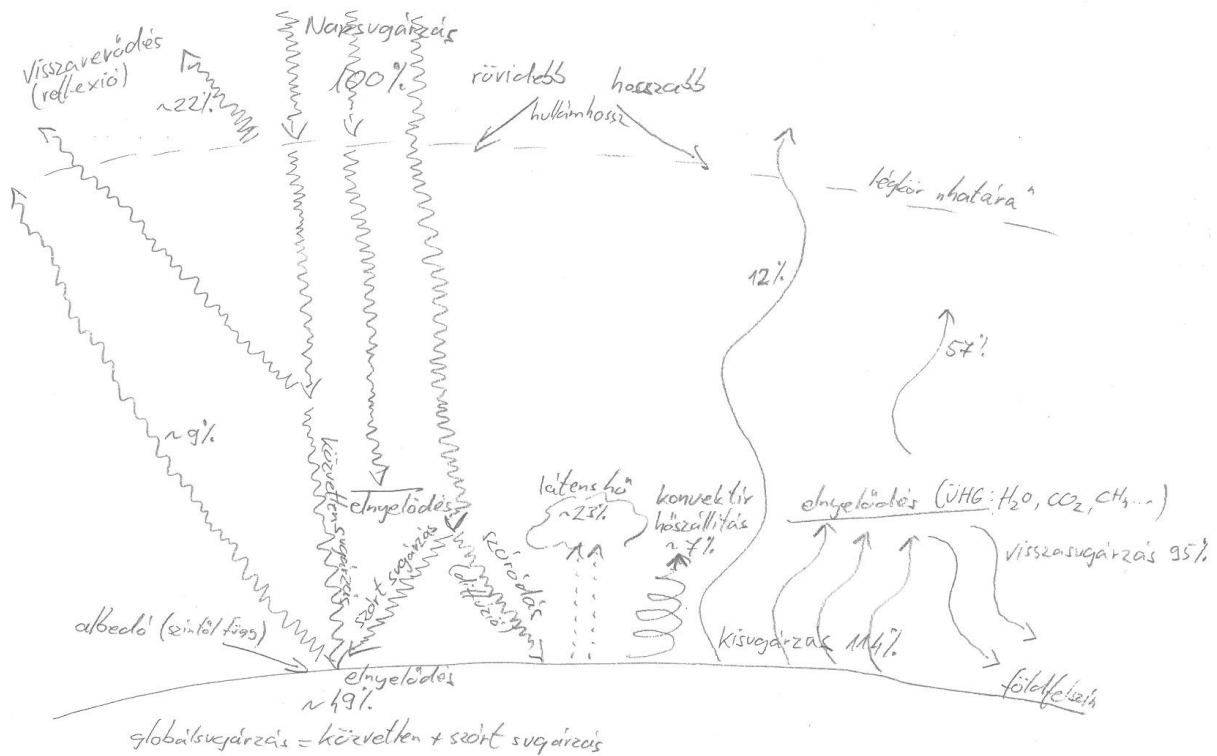 Napsugárzás
100%
visszaverődés
(reflexió)
~22%
rövidebb
hosszabb
hullámhossz
légkör „határa"
12%
57%
~9%
közvetlen sugárzás
elnyelődés
szórt sugárzás
szóródás
(diffúzió)
látens hő
~23%
konvektív
hőszállítás
~7%
elnyelődés (ÜHG: H₂O, CO₂, CH₄...)
visszasugárzás 95%
albedó (színtől függ)
kisugárzás 114%
elnyelődés
~49%
földfelszín
globálsugárzás = közvetlen + szórt sugárzás